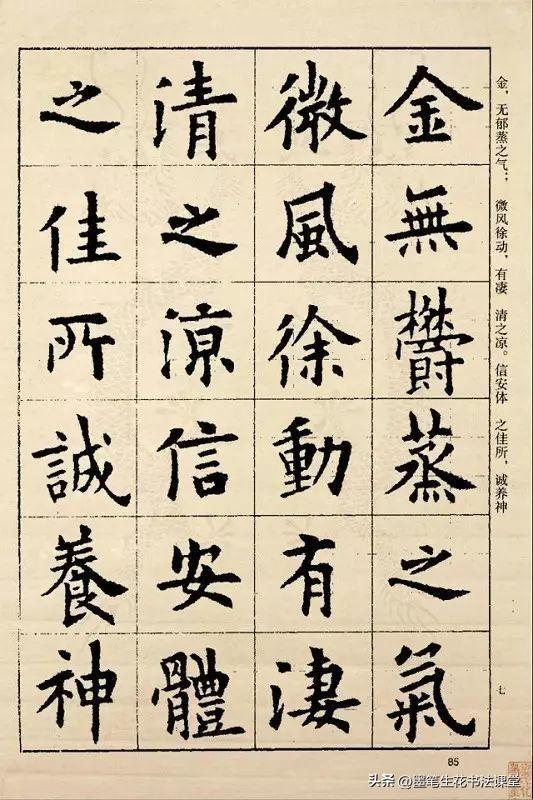 金，无郁蒸之气； 微风徐动，有凄 清之凉。信安体 之佳所，诚养神
金無欝蒸之氣
微風徐動有淒
清之涼信安體
之佳所誠養神
七
85
头条 @墨笔生花书法课堂